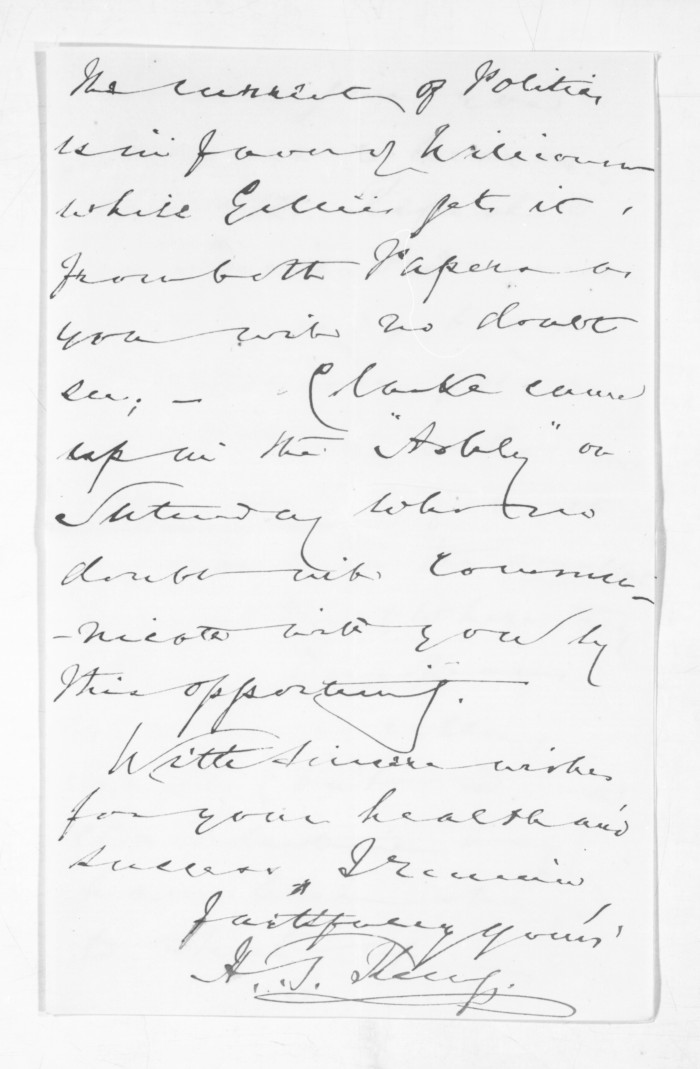 The current of Politics
is in favor of Williamson
while Gillies gets it,
from both Papers as
you will no doubt
see; — Clarke came
up in the "Ashley" on
Saturday who no
doubt will commu-
-nicate with you by
this opportunity.
With sincere wishes
for your health and
success, I remain
faithfully yours
H. T.